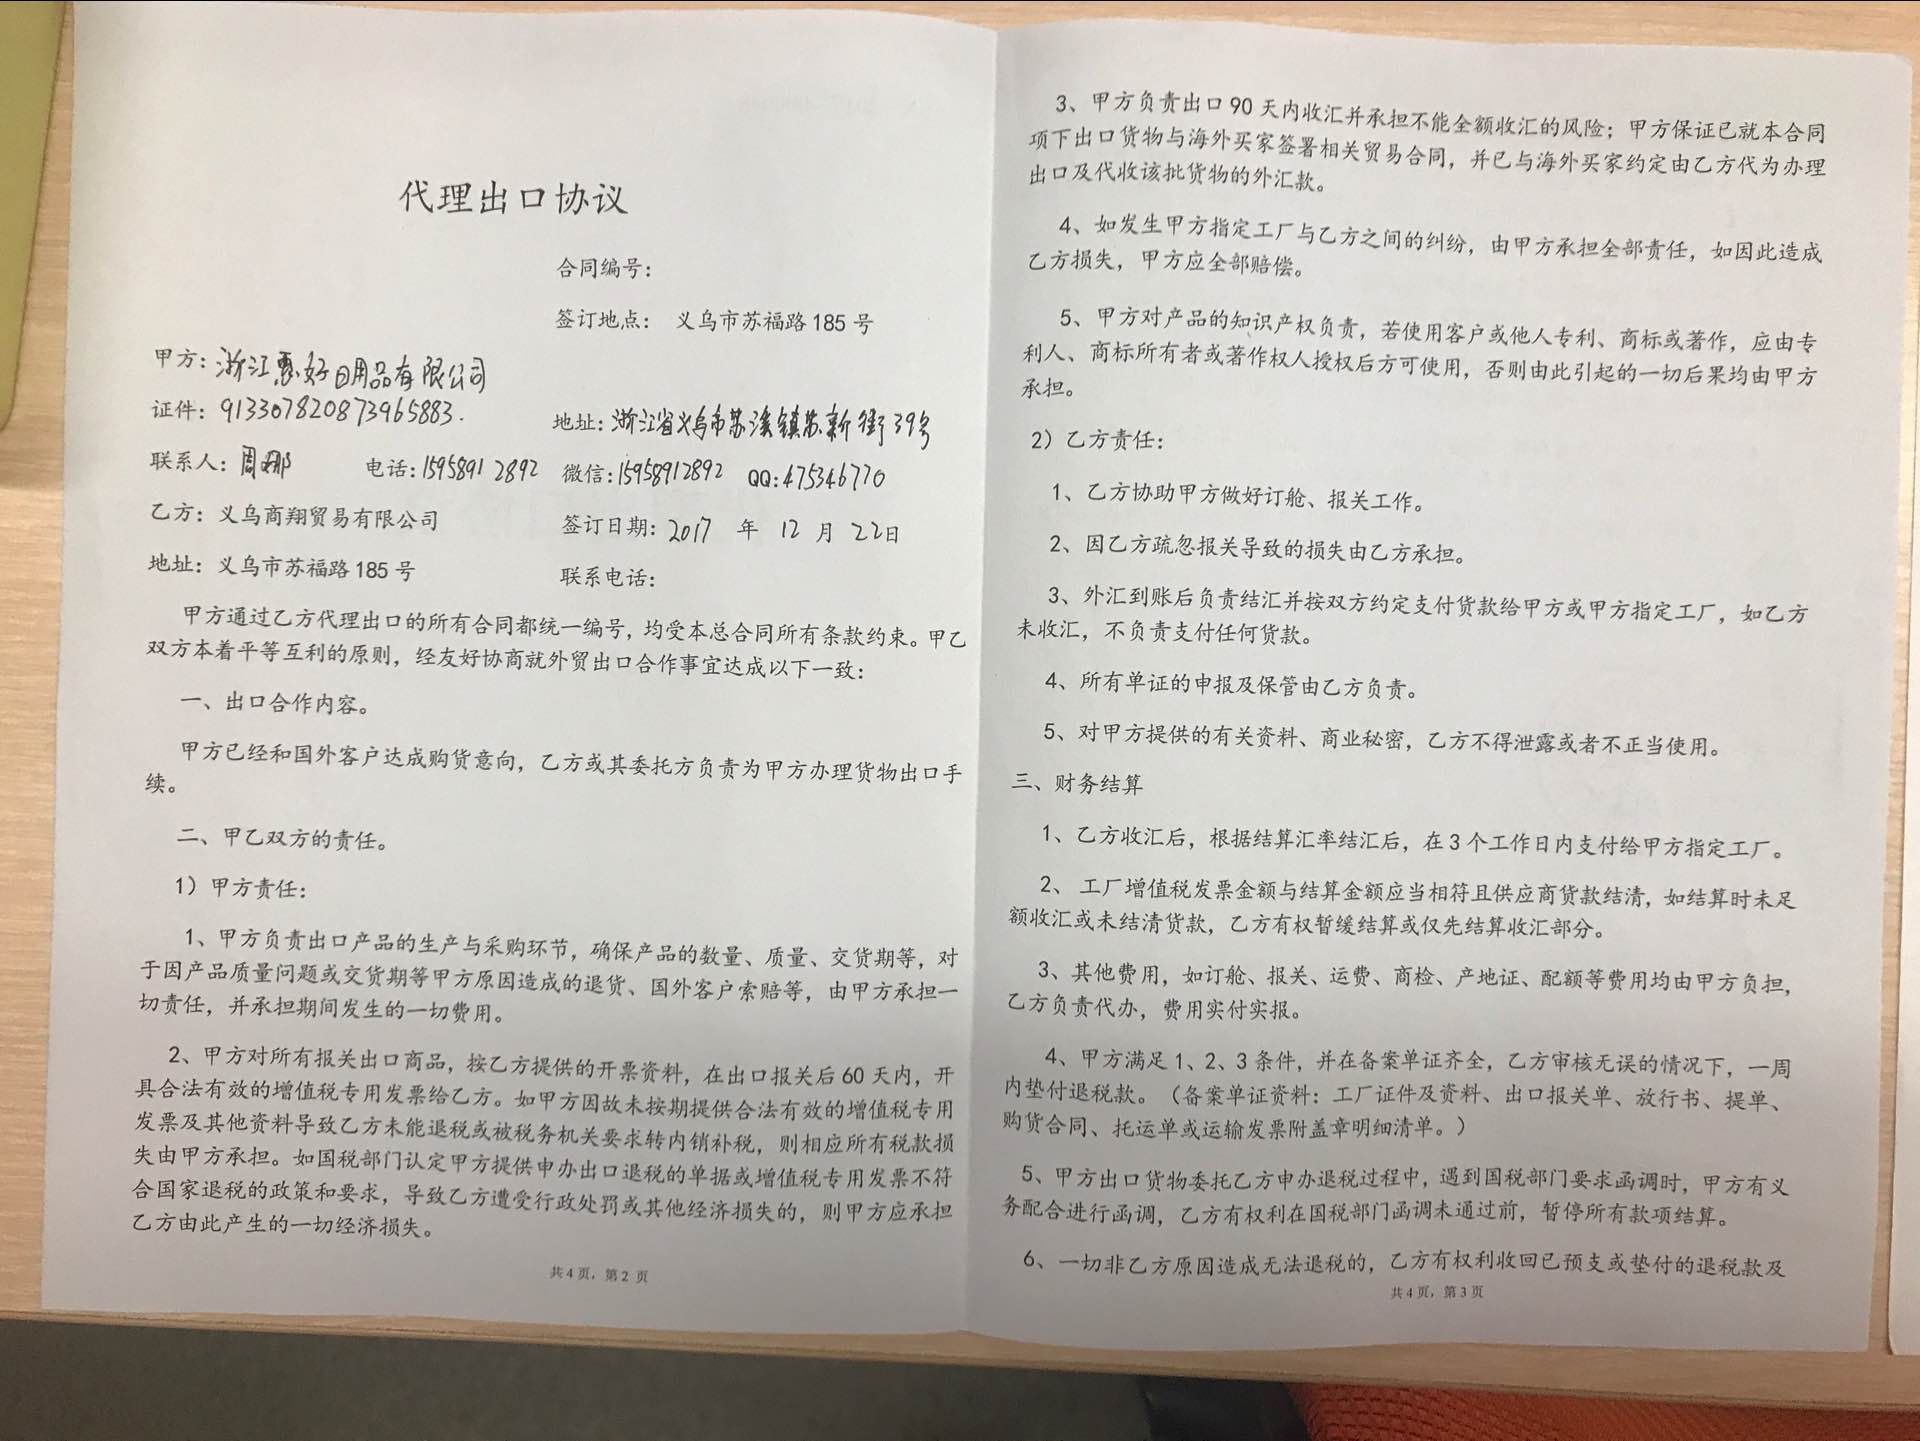 代理出口协议
合同编号：
签订地点： 义乌市苏福路185号
甲方：浙江惠好日用品有限公司
证件：913307820873965883. 地址：浙江省义乌市苏溪镇苏新街39号
联系人：周娜 电话：15958912892 微信：15958912892 QQ：475346770
乙方：义乌商翔贸易有限公司 签订日期：2017年12月22日
地址：义乌市苏福路185号 联系电话：
甲方通过乙方代理出口的所有合同都统一编号，均受本总合同所有条款约束。甲乙
双方本着平等互利的原则，经友好协商就外贸出口合作事宜达成以下一致：
一、出口合作内容。
甲方已经和国外客户达成购货意向，乙方或其委托方负责为甲方办理货物出口手
续。
二、甲乙双方的责任。
1）甲方责任：
1、甲方负责出口产品的生产与采购环节，确保产品的数量、质量、交货期等，对
于因产品质量问题或交货期等甲方原因造成的退货、国外客户索赔等，由甲方承担一
切责任，并承担期间发生的一切费用。
2、甲方对所有报关出口商品，按乙方提供的开票资料，在出口报关后60天内，开
具合法有效的增值税专用发票给乙方。如甲方因故未按期提供合法有效的增值税专用
发票及其他资料导致乙方未能退税或被税务机关要求转内销补税，则相应所有税款损
失由甲方承担。如国税部门认定甲方提供申办出口退税的单据或增值税专用发票不符
合国家退税的政策和要求，导致乙方遭受行政处罚或其他经济损失的，则甲方应承担
乙方由此产生的一切经济损失。
共4页，第2页
3、甲方负责出口90天内收汇并承担不能全额收汇的风险；甲方保证已就本合同
项下出口货物与海外买家签署相关贸易合同，并已与海外买家约定由乙方代为办理
出口及代收该批货物的外汇款。
4、如发生甲方指定工厂与乙方之间的纠纷，由甲方承担全部责任，如因此造成
乙方损失，甲方应全部赔偿。
5、甲方对产品的知识产权负责，若使用客户或他人专利、商标或著作，应由专
利人、商标所有者或著作权人授权后方可使用，否则由此引起的一切后果均由甲方
承担。
2）乙方责任：
1、乙方协助甲方做好订舱、报关工作。
2、因乙方疏忽报关导致的损失由乙方承担。
3、外汇到账后负责结汇并按双方约定支付货款给甲方或甲方指定工厂，如乙方
未收汇，不负责支付任何货款。
4、所有单证的申报及保管由乙方负责。
5、对甲方提供的有关资料、商业秘密，乙方不得泄露或者不正当使用。
三、财务结算
1、乙方收汇后，根据结算汇率结汇后，在3个工作日内支付给甲方指定工厂。
2、工厂增值税发票金额与结算金额应当相符且供应商货款结清，如结算时未足
额收汇或未结清货款，乙方有权暂缓结算或仅先结算收汇部分。
3、其他费用，如订舱、报关、运费、商检、产地证、配额等费用均由甲方负担，
乙方负责代办，费用实付实报。
4、甲方满足1、2、3条件，并在备案单证齐全，乙方审核无误的情况下，一周
内垫付退税款。（备案单证资料：工厂证件及资料、出口报关单、放行书、提单、
购货合同、托运单或运输发票附盖章明细清单。）
5、甲方出口货物委托乙方申办退税过程中，遇到国税部门要求函调时，甲方有义
务配合进行函调，乙方有权利在国税部门函调未通过前，暂停所有款项结算。
6、一切非乙方原因造成无法退税的，乙方有权利收回已预支或垫付的退税款及
共4页，第3页